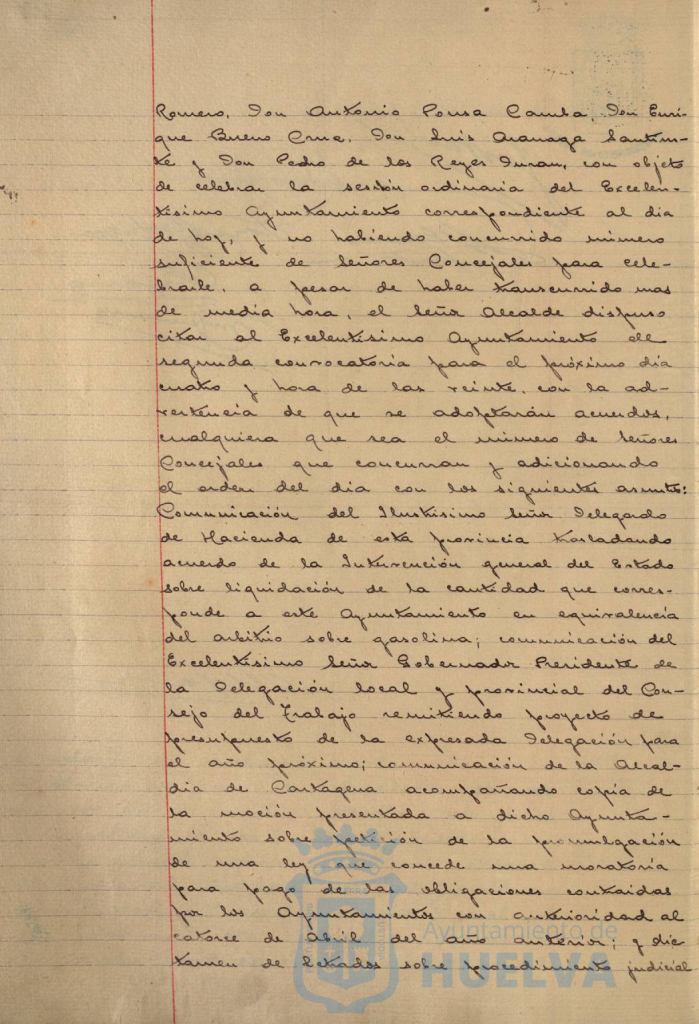 Romero, Don Antonio Pousa Camba, Don Enri-
que Bueno Cruz, Don Luis Aranaga Santim-
te y Don Pedro de los Reyes Duran, con objeto
de celebrar la sesión ordinaria del Excelen-
tísimo Ayuntamiento correspondiente al dia
de hoy, y no habiendo concurrido número
suficiente de Señores Concejales para cele-
brarle, a pesar de haber transcurrido mas
de media hora, el Señor Alcalde dispuso
citar al Excelentísimo Ayuntamiento de
segunda convocatoria para el próximo dia
cuatro y hora de las veinte, con la ad-
vertencia de que se adoptarán acuerdos,
cualquiera que sea el número de Señores
Concejales que concurran y adicionando
el orden del dia con los siguientes asuntos:
Comunicación del Ilustrísimo Señor Delegado
de Hacienda de esta provincia trasladando
acuerdo de la Intervención general del Estado
sobre liquidación de la cantidad que corres-
ponde a este Ayuntamiento en equivalencia
del arbitrio sobre gasolina; comunicación del
Excelentísimo Señor Gobernador Presidente de
la Delegación local y provincial del Con-
sejo del Trabajo remitiendo proyecto de
presupuesto de la expresada Delegación para
el año próximo; comunicación de la Alcal-
dia de Cartagena acompañando copia de
la moción presentada a dicho Ayunta-
miento sobre petición de la promulgación
de una ley que concede una moratoria
para pago de las obligaciones contraidas
por los Ayuntamientos con anterioridad al
catorce de Abril del año anterior; y dic-
tamen de Letrados sobre procedimiento judicial
Ayuntamiento de
HUELVA